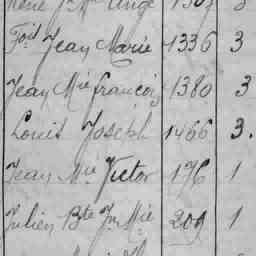 René Jn Mie Ange 1307 3
Foit Jean Marie 1336 3
Jean Mie François 1380 3
Louis Joseph 1466 3.
Jean Mie Victor 176 1
Julien Bte Fr. Mie 209 1